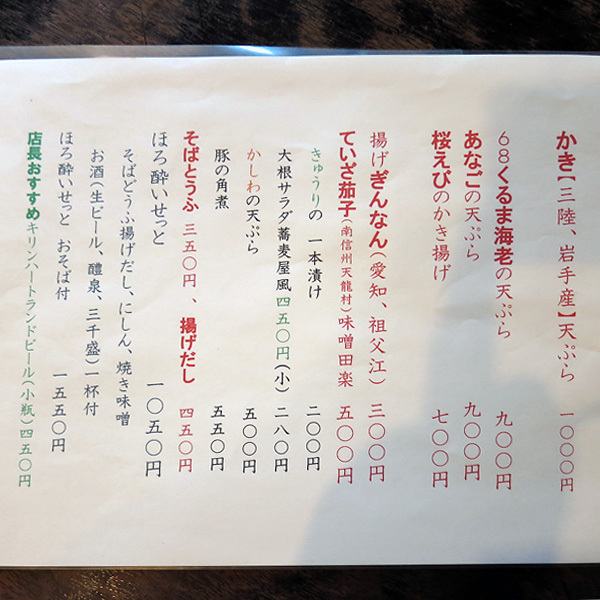 かき【三陸、岩手産】天ぷら 一〇〇〇円
６８くるま海老の天ぷら 九〇〇円
あなごの天ぷら 九〇〇円
桜えびのかき揚げ 七〇〇円
揚げぎんなん(愛知、祖父江) 三〇〇円
ていざ茄子(南信州天龍村)味噌田楽 五〇〇円
きゅうりの一本漬け 二〇〇円
大根サラダ蕎麦屋風四五〇円(小)二八〇円
かしわの天ぷら 五〇〇円
豚の角煮 五五〇円
そばとうふ 三五〇円、揚げだし 四五〇円
ほろ酔いせっと 一〇五〇円
そばどうふ揚げだし、にしん、焼き味噌
お酒(生ビール、醴泉、三千盛)一杯付
ほろ酔いせっと おそば付 一五五〇円
店長おすすめキリンハートランドビール(小瓶)四五〇円